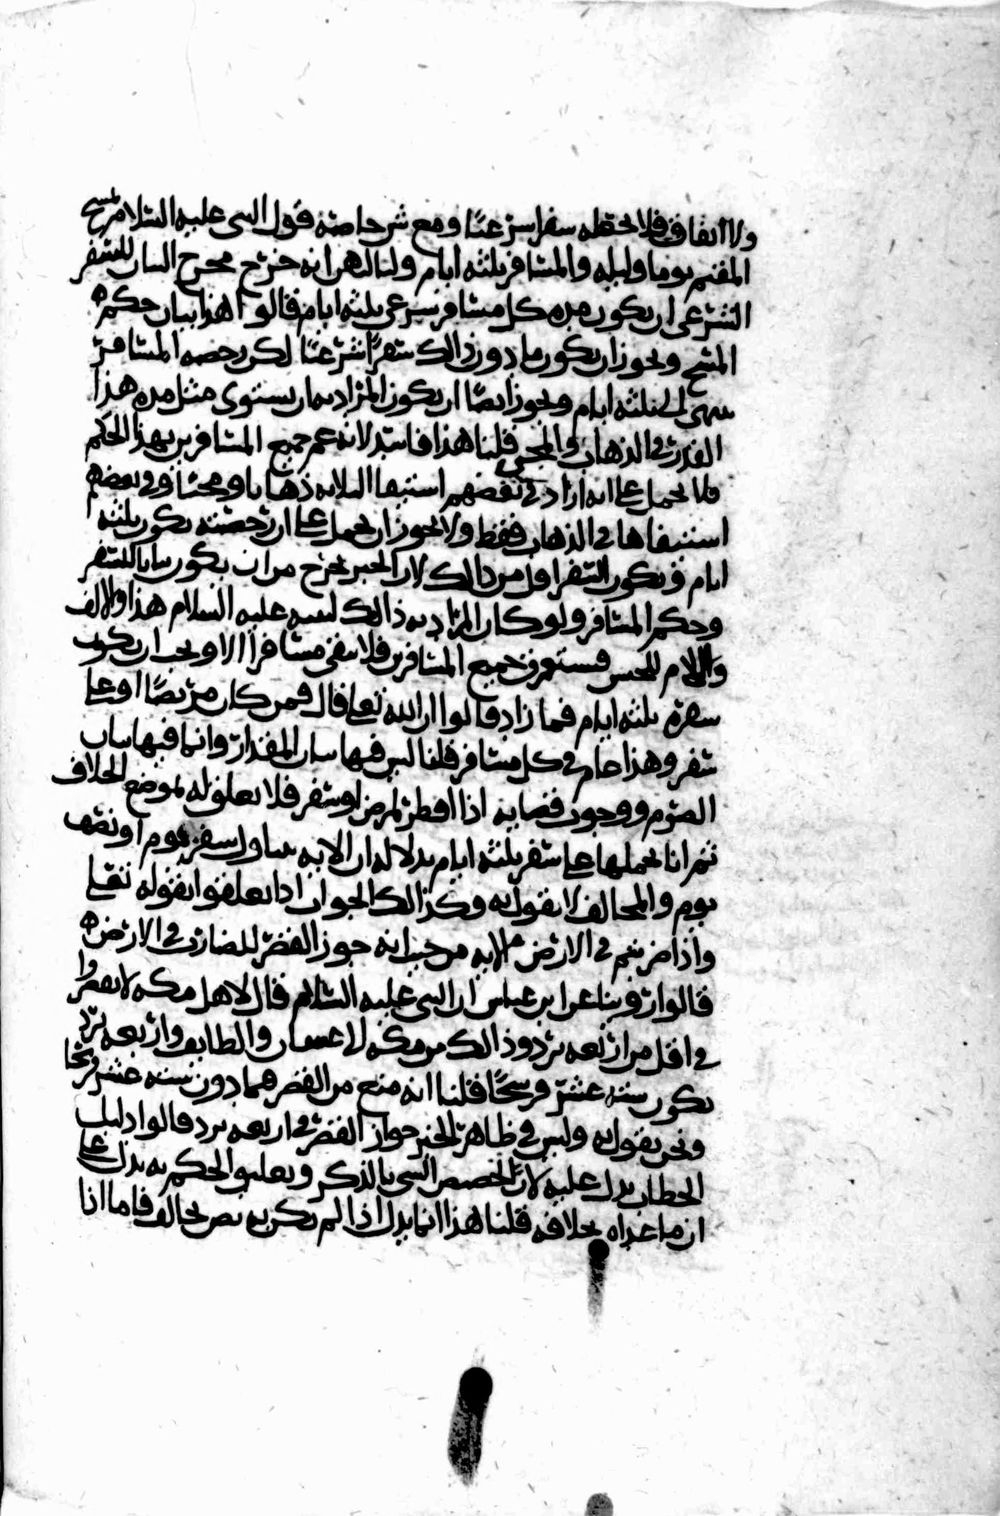 ولا اتفاق فلا نجعله سفرا شرعيًا ومع شرحاصته قول النبي عليه السلام يمسح
المقيم يوما وليله والمسافر ثلثه ايام ولنا انه خرج مخرج البيان للسفر
الشرعي ان يكون مده كل مسافر شرعي ثلثه ايام قالوا هذا بيان حكم
المسح ويجوز ان يكون ما دون ذالك سفرًا شرعيًا لكن رخصه المسافر
تنتهي الى ثلثه ايام ويجوز ايضًا ان يكون المراد به ان يستوي مثل مده هذا
القدر في الذهاب والمجي قلنا هذا فاسد لانه عم جميع المسافرين بهذا الحكم
فلا يحمل على انه اراد في بعضهم استيفا الثلاثه ذهابا ومجيئا وفي بعضهم
استيفاها في الذهاب فقط ولا يجوز ان يحمل على ان رخصته يكون ثلثه
ايام ويكون السفر اقل من ذالك لان الخبر خرج من ان يكون بيانا للسفر
وحكم المسافر ولو كان المراد به ذالك لبينه عليه السلام هذا والالف
واللام للجنس فيستغرق جميع المسافرين فلا يبقى مسافرا الا ويجب ان يكون
سفره ثلثه ايام فما زاد قالوا ان الله تعلى قال فمن كان مريضًا او على
سفر وهذا عام في كل مسافر قلنا ليس فيها بيان المقدار وانما فيها بيان
الصوم ووجوب قضايه اذا افطر لمرض او سفر فلا تعلق له بموضع الخلاف
ثم انا نحملها على سفر ثلثه ايام بدلاله ان الايه تتناول سفر يوم او نصف
يوم والمخالف لا يقول به وكذالك الجواب اذا تعلقوا بقوله تعلى
واذا ضربتم في الارض الايه من حيث انه جوز القصر للضارب في الارض
قالوا روينا عن ابن عباس ان النبي عليه السلام قال لاهل مكه لا تقصروا
في اقل من اربعه برد وذالك من مكه الى عسفان والطايف واربعه برد
يكون سته عشر فرسخًا قلنا انه منع من القصر فيما دون سته عشر فرسخا
ونحن نقول به وليس في ظاهر الخبر جواز القصر في اربعه برد قالوا دليل
الخطاب يدل عليه لان تخصيص الشي بالذكر وتعليق الحكم به يدل على
ان ما عداه بخلافه قلنا هذا انما يدل اذا لم يكن به نص يخالف فاما اذا